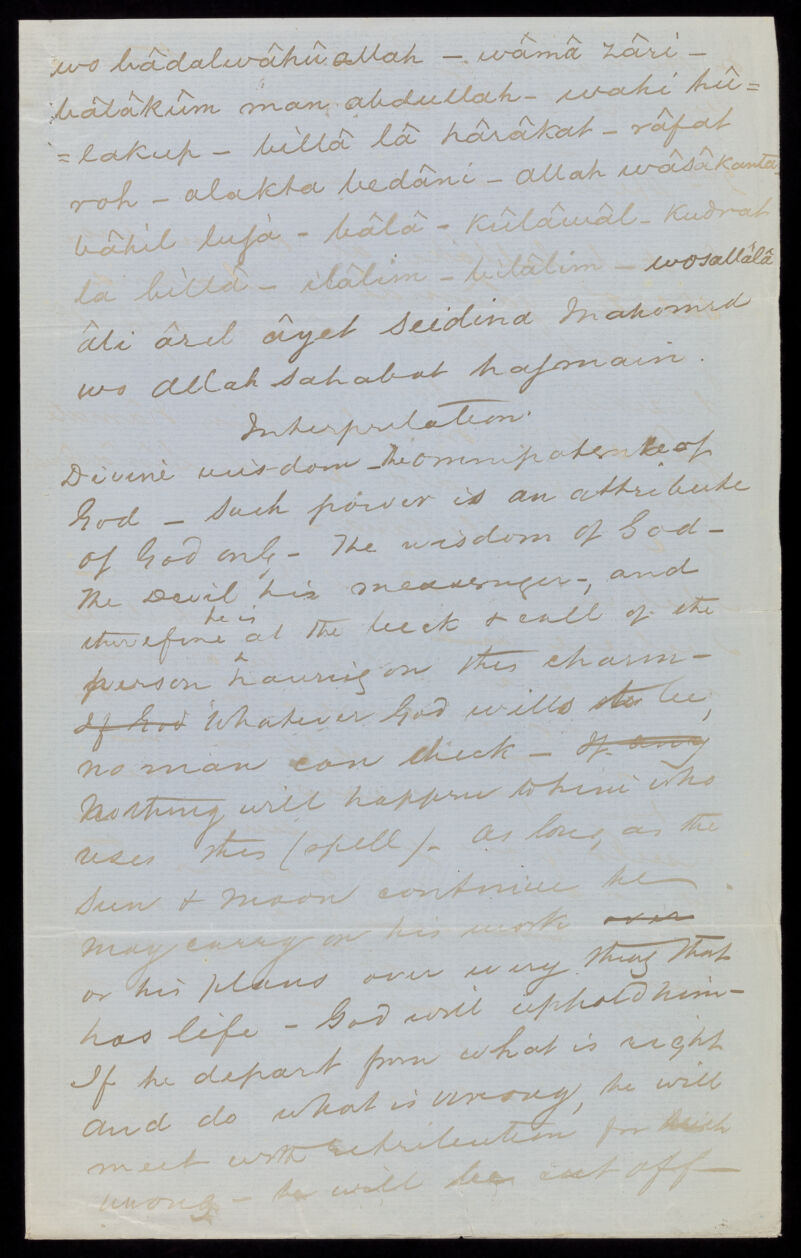 wo bâdalwâhû allah – wâmâ zâri –
bâlâkûm man abdullah – wahi hû=
=lakup – billâ lâ hârâkat – râfat
roh – alakta bedâni – allah wâsâkanta
bâhil lujà – bâlâ – kûlâwâl – kudrat
la billâ – ilâlim – bilâlim – wosallâlâ
âli ârel âyet Seidina Mahomed
wo Allah sahabat hajmain.
Interpretation.
Divine wisdom – the omnipotence of
God – Such power is an attribute
of God only – The wisdom of God –
The Devil his messenger –, and
therefore he is at the beck & call of the
person having on this charm –
If God Whatever God wills to be,
no man can check – If any
Nothing will happen to him who
uses this (spell) – As long as the
Sun & Moon continue he
may carry on his work over
or his plans over every thing that
has life – God will uphold him –
If he depart from what is right
and do what is wrong, he will
meet with retribution for such
wrong – he will be cut off –